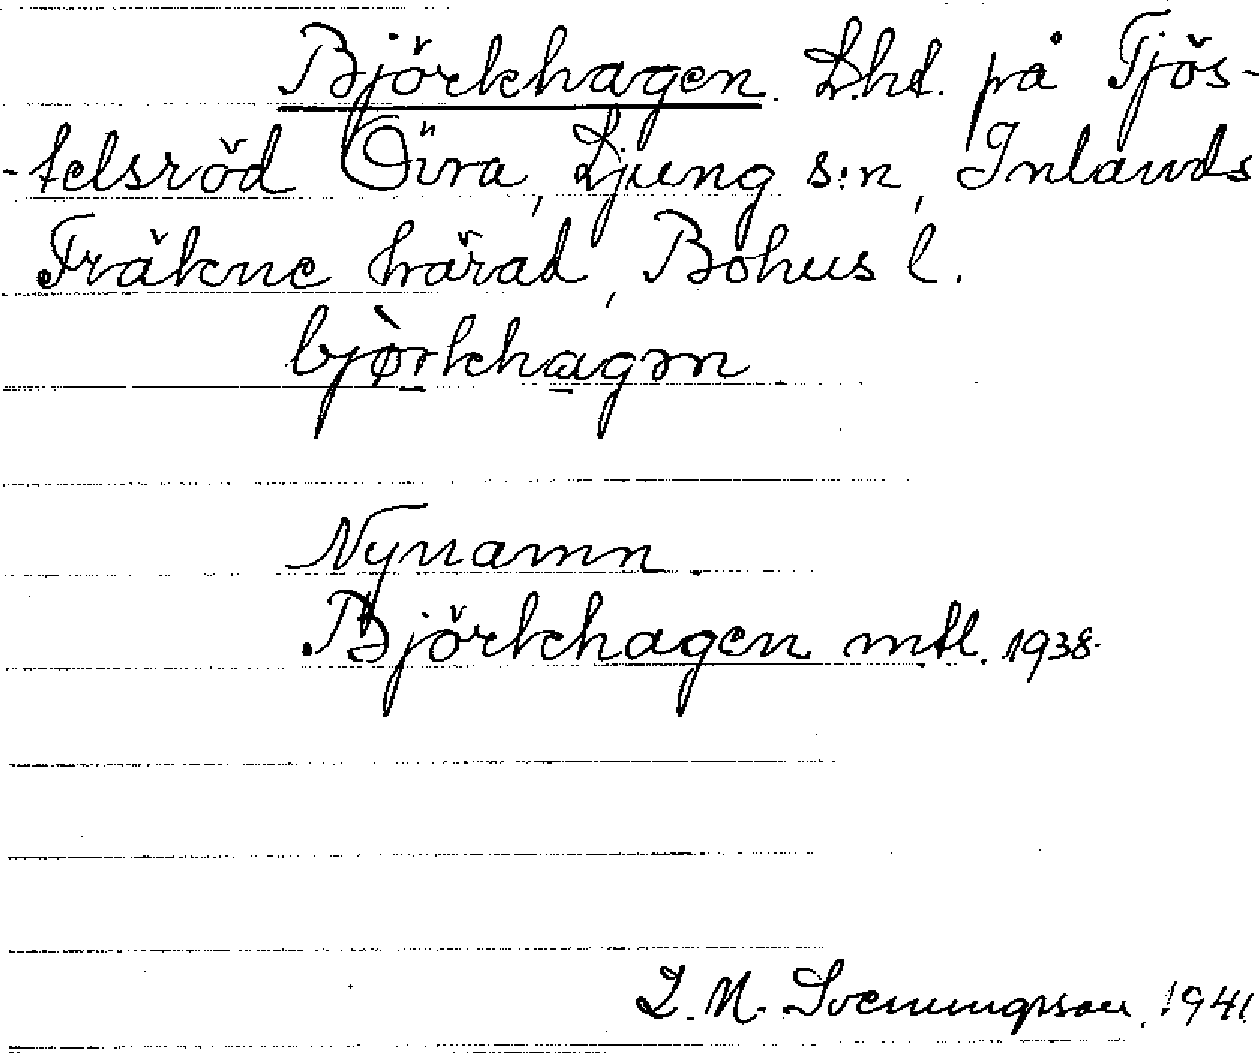 Björkhagen. Lht. på Tjös-
-telsröd Övra, Ljung s:n, Inlands
Fräkne härad, Bohus l.
bjò̱rkha̱gən
Nynamn.
Björkhagen mtl. 1938.
Svenungsson, 1941.